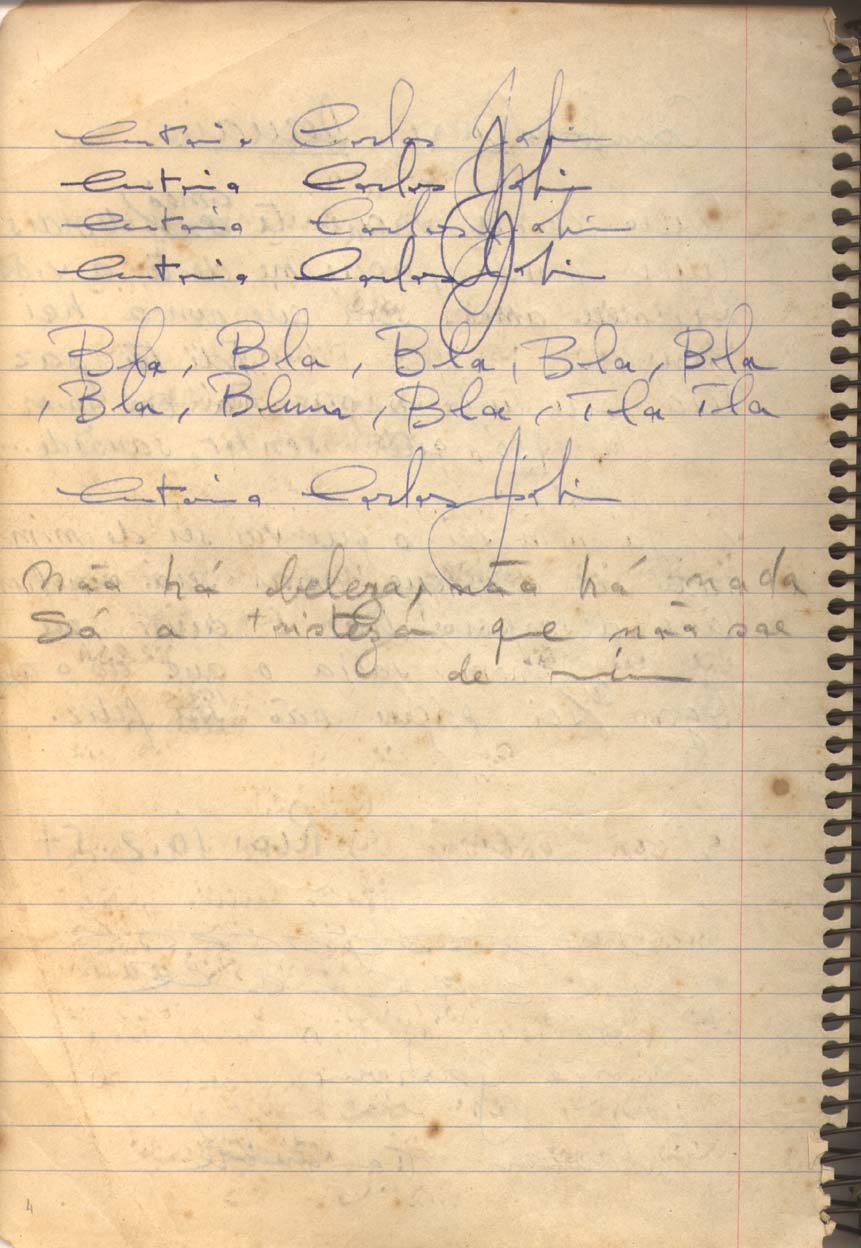 Antonio Carlos Jobim
Antonio Carlos Jobim
Antonio Carlos Jobim
Antonio Carlos Jobim
Bla, Bla, Bla, Bla, Bla
, Bla, Bluma, Bla, Tla Tla
Antonio Carlos Jobim
Não há beleza, não há nada
Só a tristeza que não sae
de mim
4